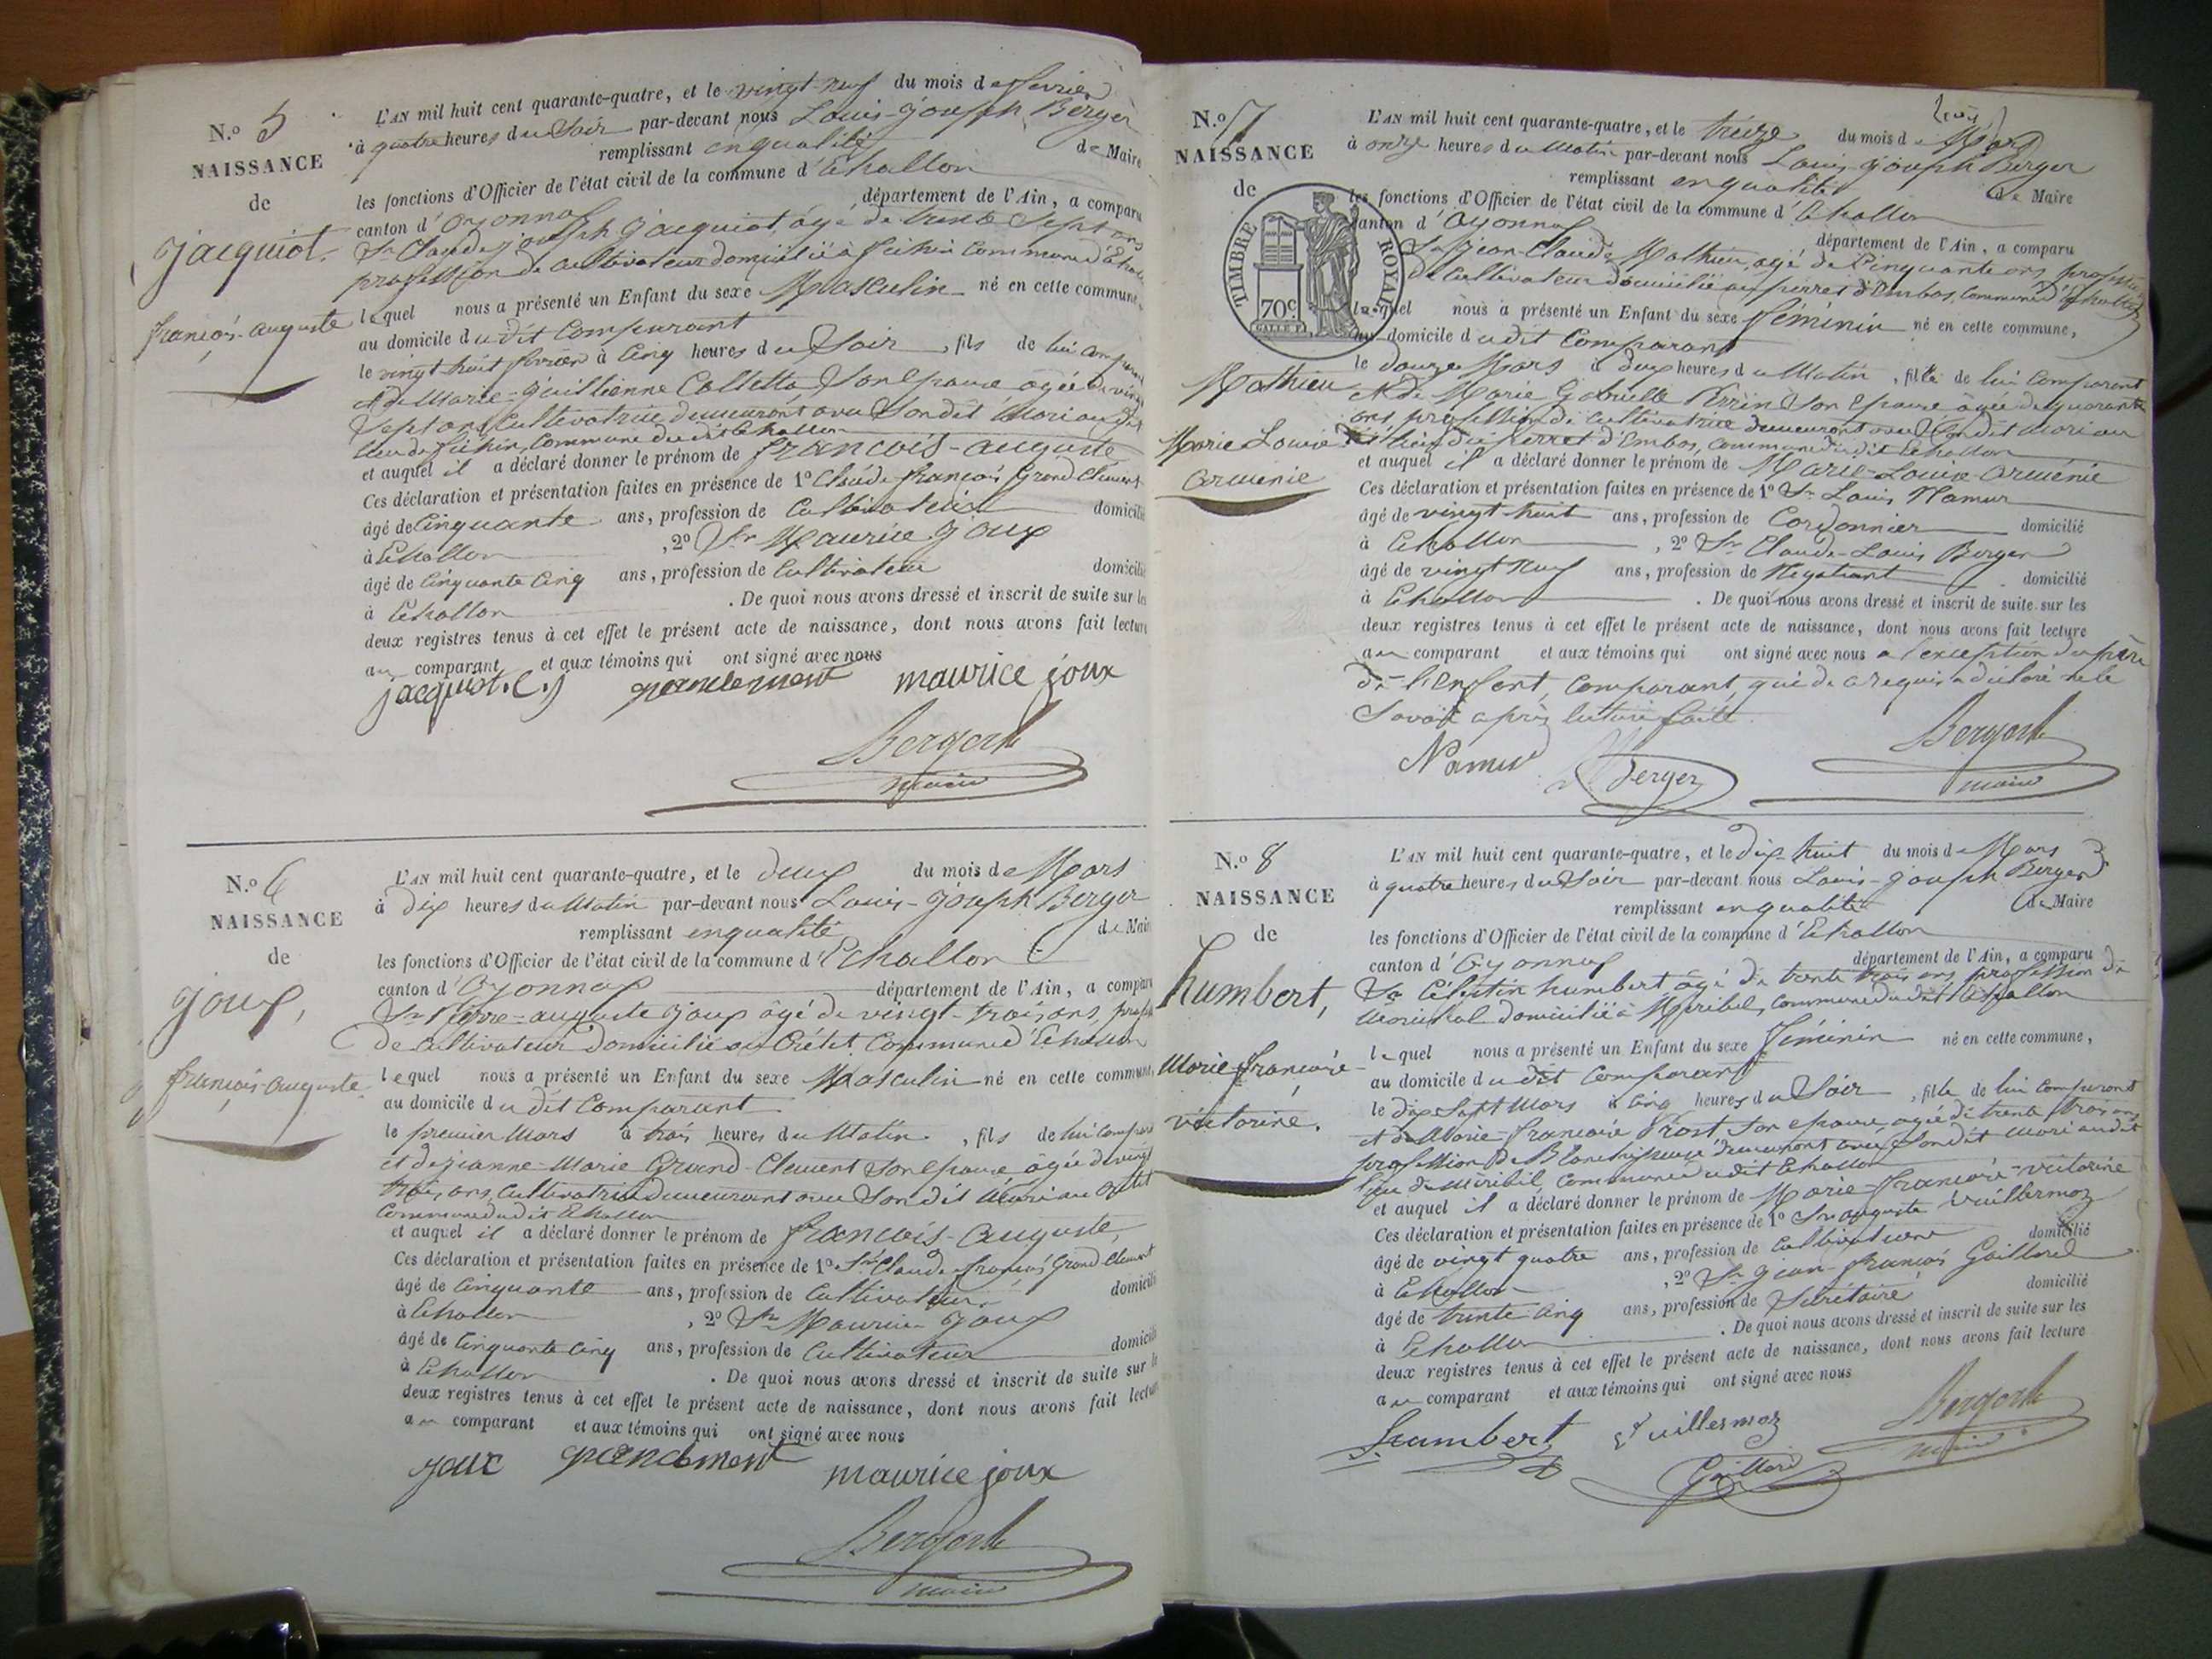 N.º 5
NAISSANCE
de
Jacquiot
françois-auguste
L'AN mil huit cent quarante-quatre, et le vingt-neuf du mois de février
à quatre heures du Soir par-devant nous Louis-Joseph Berger
remplissant en qualité de Maire
les fonctions d'Officier de l'état civil de la commune d'Echallon
canton d'Oyonnax département de l'Ain, a comparu
Sr Claude joseph Jacquiot, âgé de trente Sept ans
profession de Cultivateur domicilié à commune d'Echallon
lequel nous a présenté un Enfant du sexe Masculin né en cette commune,
au domicile du dit Comparant
le vingt huit février à Cinq heures du Soir, fils de lui comparant
et de Marie- Colletta Son Epouse âgée de vingt
Sept ans Cultivatrice demeurant avec Son dit Mari au dit
lieu de Commune du dit Echallon
et auquel il a déclaré donner le prénom de françois-auguste
Ces déclaration et présentation faites en présence de 1º Claude françois Grand-Clément
âgé de Cinquante ans, profession de Cultivateur domicilié
à Echallon , 2º Sr Maurice Joux
âgé de Cinquante Cinq ans, profession de Cultivateur domicilié
à Echallon . De quoi nous avons dressé et inscrit de suite sur les
deux registres tenus à cet effet le présent acte de naissance, dont nous avons fait lecture
au comparant et aux témoins qui ont signé avec nous
jacquiot. C. j grandclement maurice joux
Berger
maire
N.º 6
NAISSANCE
de
Joux,
françois-auguste
L'AN mil huit cent quarante-quatre, et le deux du mois de Mars
à dix heures du Matin par-devant nous Louis-Joseph Berger
remplissant en qualité de Maire
les fonctions d'Officier de l'état civil de la commune d'Echallon
canton d'Oyonnax département de l'Ain, a comparu
Sr Pierre-auguste Joux âgé de vingt-trois ans, profession
de Cultivateur domicilié au Crétet Commune d'Echallon
lequel nous a présenté un Enfant du sexe Masculin né en cette commune,
au domicile du dit Comparant
le premier Mars à trois heures du Matin, fils de lui Comparant
et de jeanne-Marie Grand-Clement Son Epouse âgée de vingt
trois ans, Cultivatrice demeurant avec Son dit Mari au Crétet
Commune du dit Echallon
et auquel il a déclaré donner le prénom de françois-auguste,
Ces déclaration et présentation faites en présence de 1º Sr Claude françois Grand Clement
âgé de Cinquante ans, profession de Cultivateur domicilié
à Echallon , 2º Sr Maurice Joux
âgé de Cinquante Cinq ans, profession de Cultivateur domicilié
à Echallon . De quoi nous avons dressé et inscrit de suite sur les
deux registres tenus à cet effet le présent acte de naissance, dont nous avons fait lecture
au comparant et aux témoins qui ont signé avec nous
joux grandclement maurice joux
Berger
maire
N.º 7
NAISSANCE
de
TIMBRE ROYAL
70c
Mathieu
Marie Louise
Arménie
L'AN mil huit cent quarante-quatre, et le treize du mois de Mars
à onze heures du Matin par-devant nous Louis Joseph Berger
remplissant en qualité de Maire
les fonctions d'Officier de l'état civil de la commune d'Echallon
canton d'Oyonnax
département de l'Ain, a comparu
Sr Jean-Claude Mathieu, agé de Cinquante ans profession
de Cultivateur domicilié au perret d'Embos, Commune d'Echallon
lequel nous a présenté un Enfant du sexe féminin né en cette commune,
au domicile du dit Comparant
le douze Mars à deux heures du Matin, fille de lui Comparant
et de Marie Gabrielle Perrin Son Epouse âgée de quarante
ans profession de cultivatrice demeurant avec Son dit Mari au
dit lieu du perret d'Embos, Commune du dit Echallon
et auquel il a déclaré donner le prénom de Marie-Louise Arménie
Ces déclaration et présentation faites en présence de 1º Sr Louis Namur
âgé de vingt huit ans, profession de Cordonnier domicilié
à Echallon , 2º Sr Claude-Louis Berger
âgé de vingt neuf ans, profession de Négotiant domicilié
à Echallon . De quoi nous avons dressé et inscrit de suite sur les
deux registres tenus à cet effet le présent acte de naissance, dont nous avons fait lecture
au comparant et aux témoins qui ont signé avec nous a l'exception du père
de l'Enfant, Comparant, qui de ce requis a déclaré ne le
Savoir après lecture faite.
Namur Berger Berger
maire
N.º 8
NAISSANCE
de
humbert,
Marie-françoise-
victorine.
L'AN mil huit cent quarante-quatre, et le dix-huit du mois de Mars
à quatre heures du Soir par-devant nous Louis-Joseph Berger
remplissant en qualité de Maire
les fonctions d'Officier de l'état civil de la commune d'Echallon
canton d'Oyonnax département de l'Ain, a comparu
Sr Célestin humbert, âgé de trente trois ans profession de
Maréchal domicilié à Miribel, Commune du dit Echallon
lequel nous a présenté un Enfant du sexe féminin né en cette commune,
au domicile du dit Comparant
le dix Sept Mars à Cinq heures du Soir, fille de lui Comparant
et de Marie-françoise Prost Son epouse, agée de trente trois ans
profession de Blanchisseuse demeurant avec Son dit Mari au dit
lieu de Miribel, Commune du dit Echallon
et auquel il a déclaré donner le prénom de Marie-françoise-victorine
Ces déclaration et présentation faites en présence de 1º Sr auguste Vuillermoz
âgé de vingt quatre ans, profession de Cultivateur domicilié
à Echallon , 2º Sr Jean-françois Gaillard
âgé de trente Cinq ans, profession de Secrétaire domicilié
à Echallon . De quoi nous avons dressé et inscrit de suite sur les
deux registres tenus à cet effet le présent acte de naissance, dont nous avons fait lecture
au comparant et aux témoins qui ont signé avec nous
humbert Vuillermoz Berger
Gaillard maire